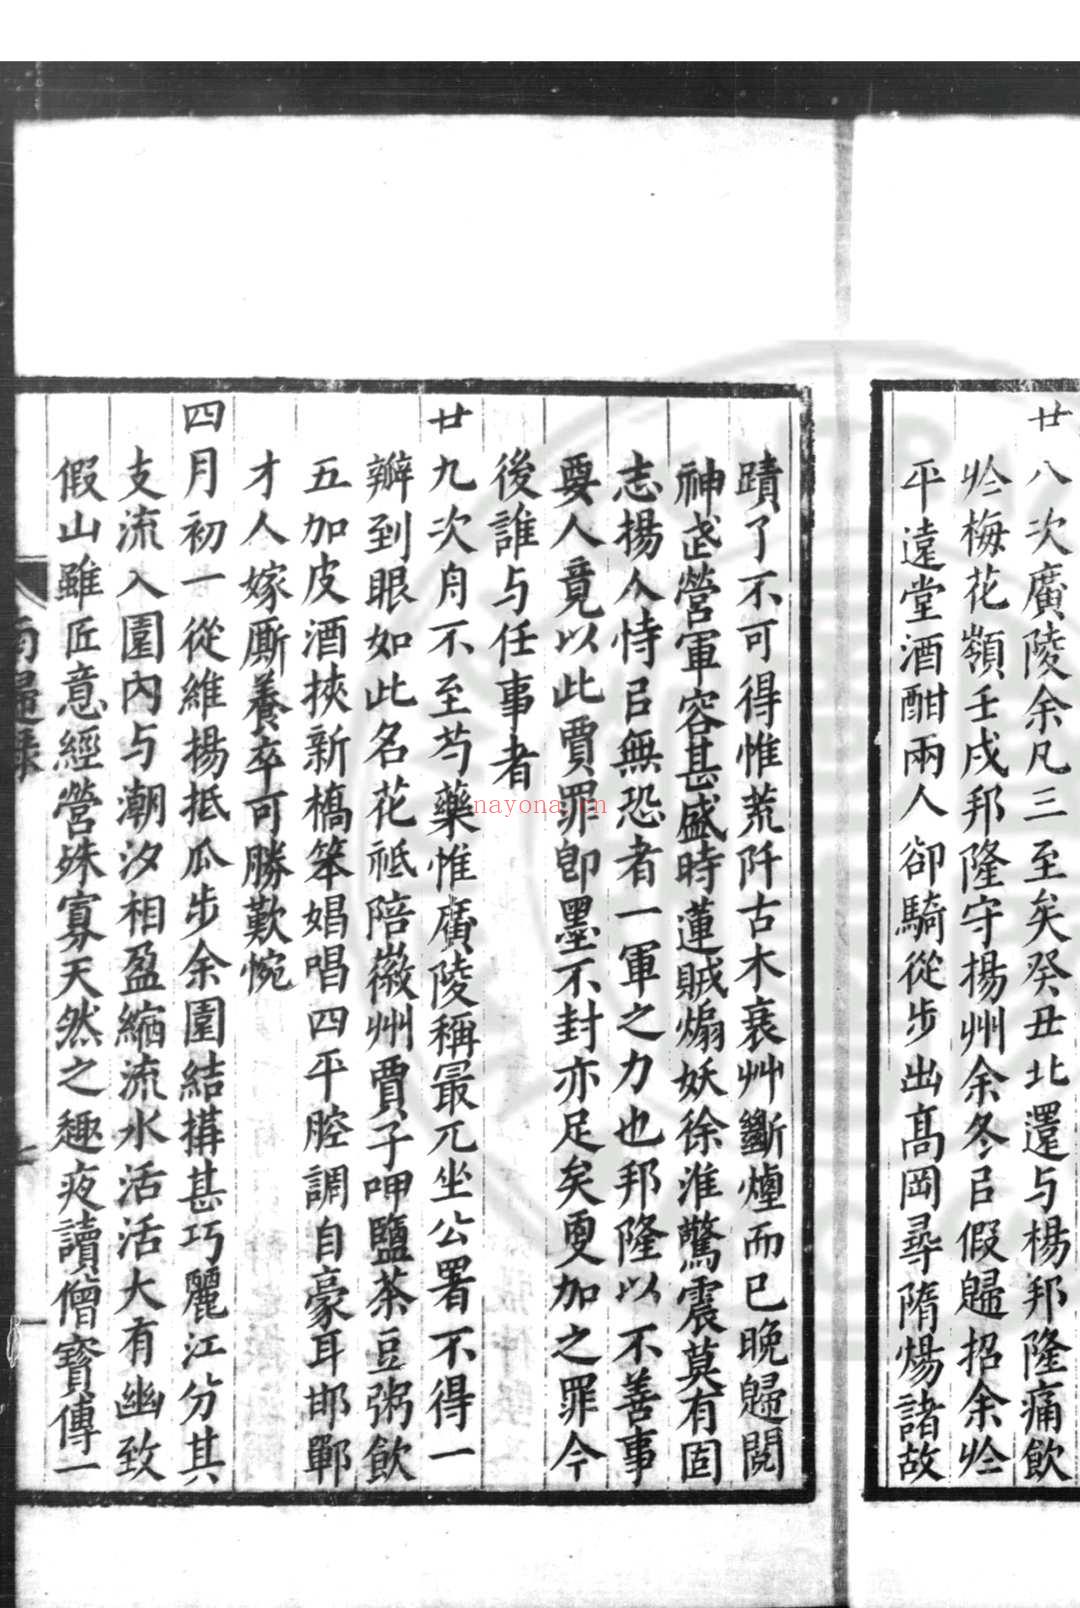 廿八次廣陵余凡三至矣癸丑北還与楊邦隆痛飲
於梅花嶺壬戌邦隆守揚州余冬㠯假歸招余於
平遠堂酒酣兩人卻騎從步出高岡尋隋煬諸故
蹟了不可得惟荒阡古木衰艸斷煙而已晚歸閱
神武營軍容甚盛時蓮賊煽妖徐淮驚震莫有固
志揚人恃㠯無恐者一軍之力也邦隆以不善事
要人竟以此賈罪卽墨不封亦足矣更加之罪今
後誰与任事者
廿九次舟不至芍藥惟廣陵稱最兀坐公署不得一
瓣到眼如此名花祗陪徽州賈子呷鹽茶豆粥飲
五加皮酒挾新橋笨娼唱四平腔調自豪耳邯鄲
才人嫁厮養卒可勝歎惋
四月初一從維揚抵瓜步余園結搆甚巧麗江分其
支流入園內与潮汐相盈縮流水活活大有幽致
假山雖匠意經營殊寡天然之趣夜讀僧寶傳一
南歸錄
nayona.cn